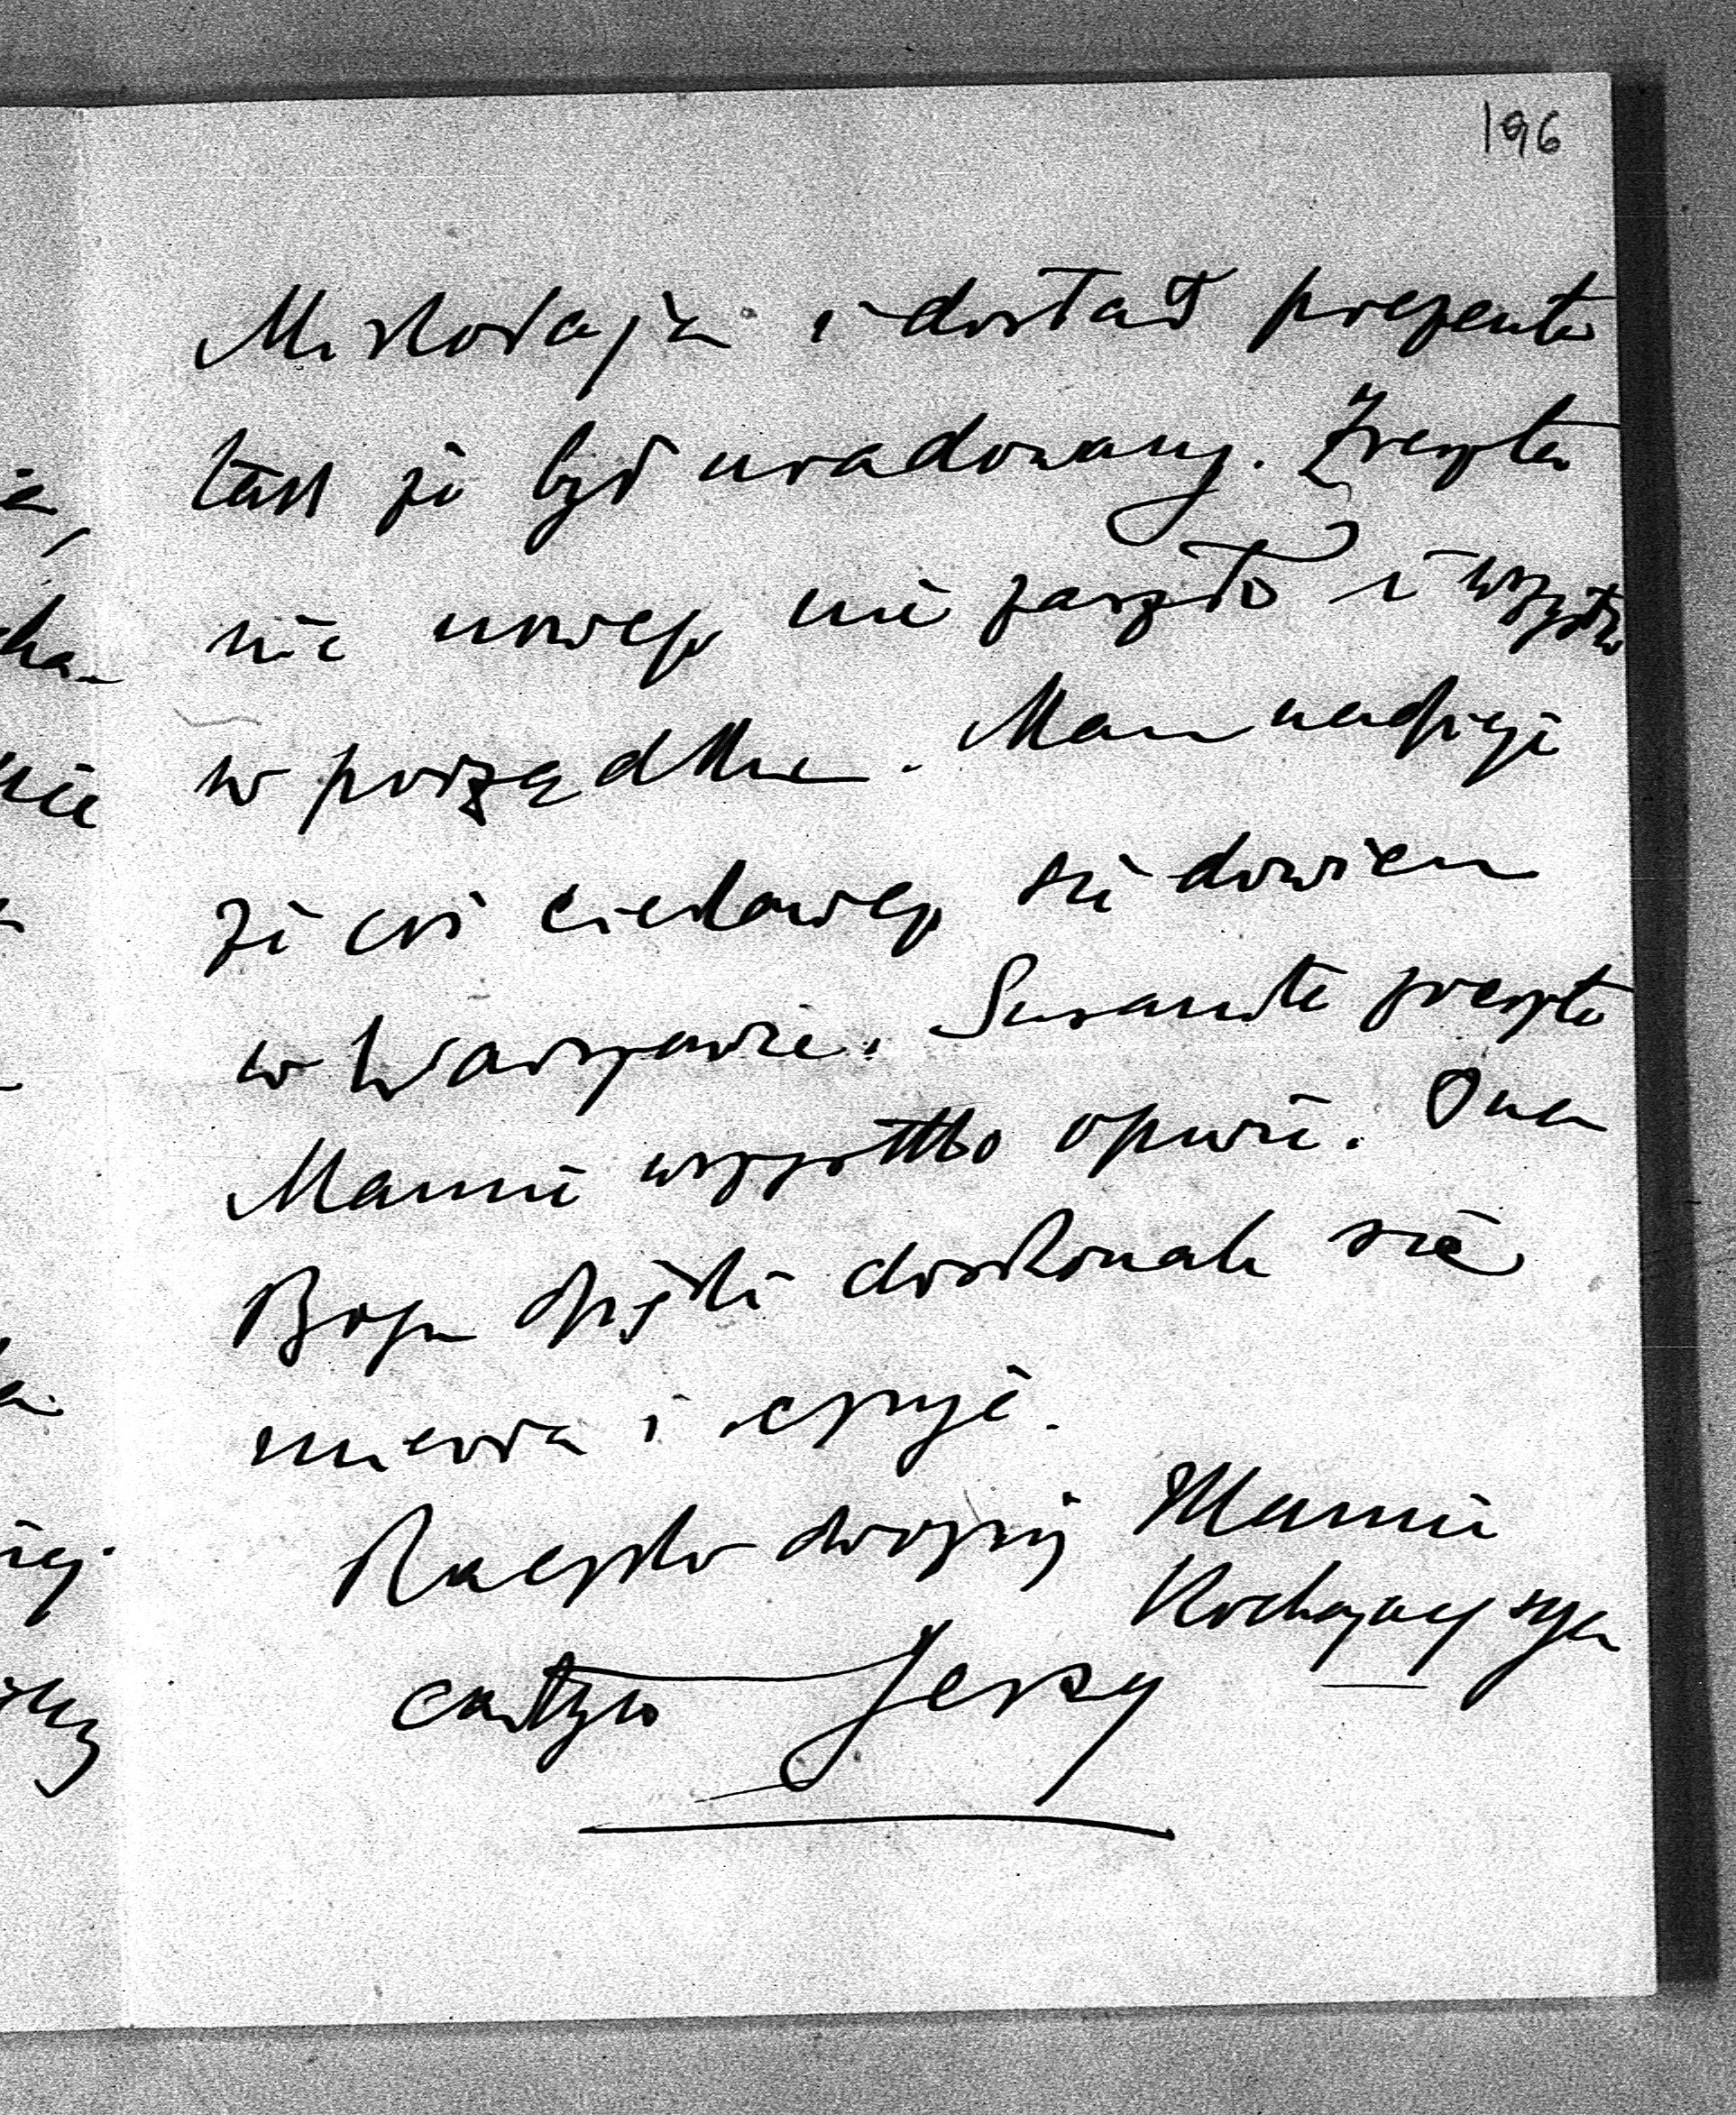 196
Mikołaja i dostał prezenta
tak że był uradowany. Zresztą
nic nowego nie zaszło i wszystko
w porządku. Mam nadzieję
że coś ciekawego się dowiem
w Warszawie. Zresztą
Mamie wszystko opowie. Ona
Bogu dzięki doskonale się
miewa i czuje.
Rączki drogiej Mamie
Kochający syn
całuję Jerzy